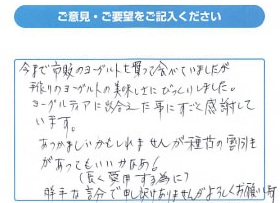 ご意見・ご要望をご記入ください
今まで市販のヨーグルトを買って食べていましたが
手作りのヨーグルトの美味しさにびっくりしました。
ヨーグルティアに出会えた事にすごく感謝して
います。
あつかましいかもしれませんが種菌の割引き
があってもいいかなぁ!
(長く愛用する為に)
勝手な言分で申し訳ありませんがよろしくお願いします